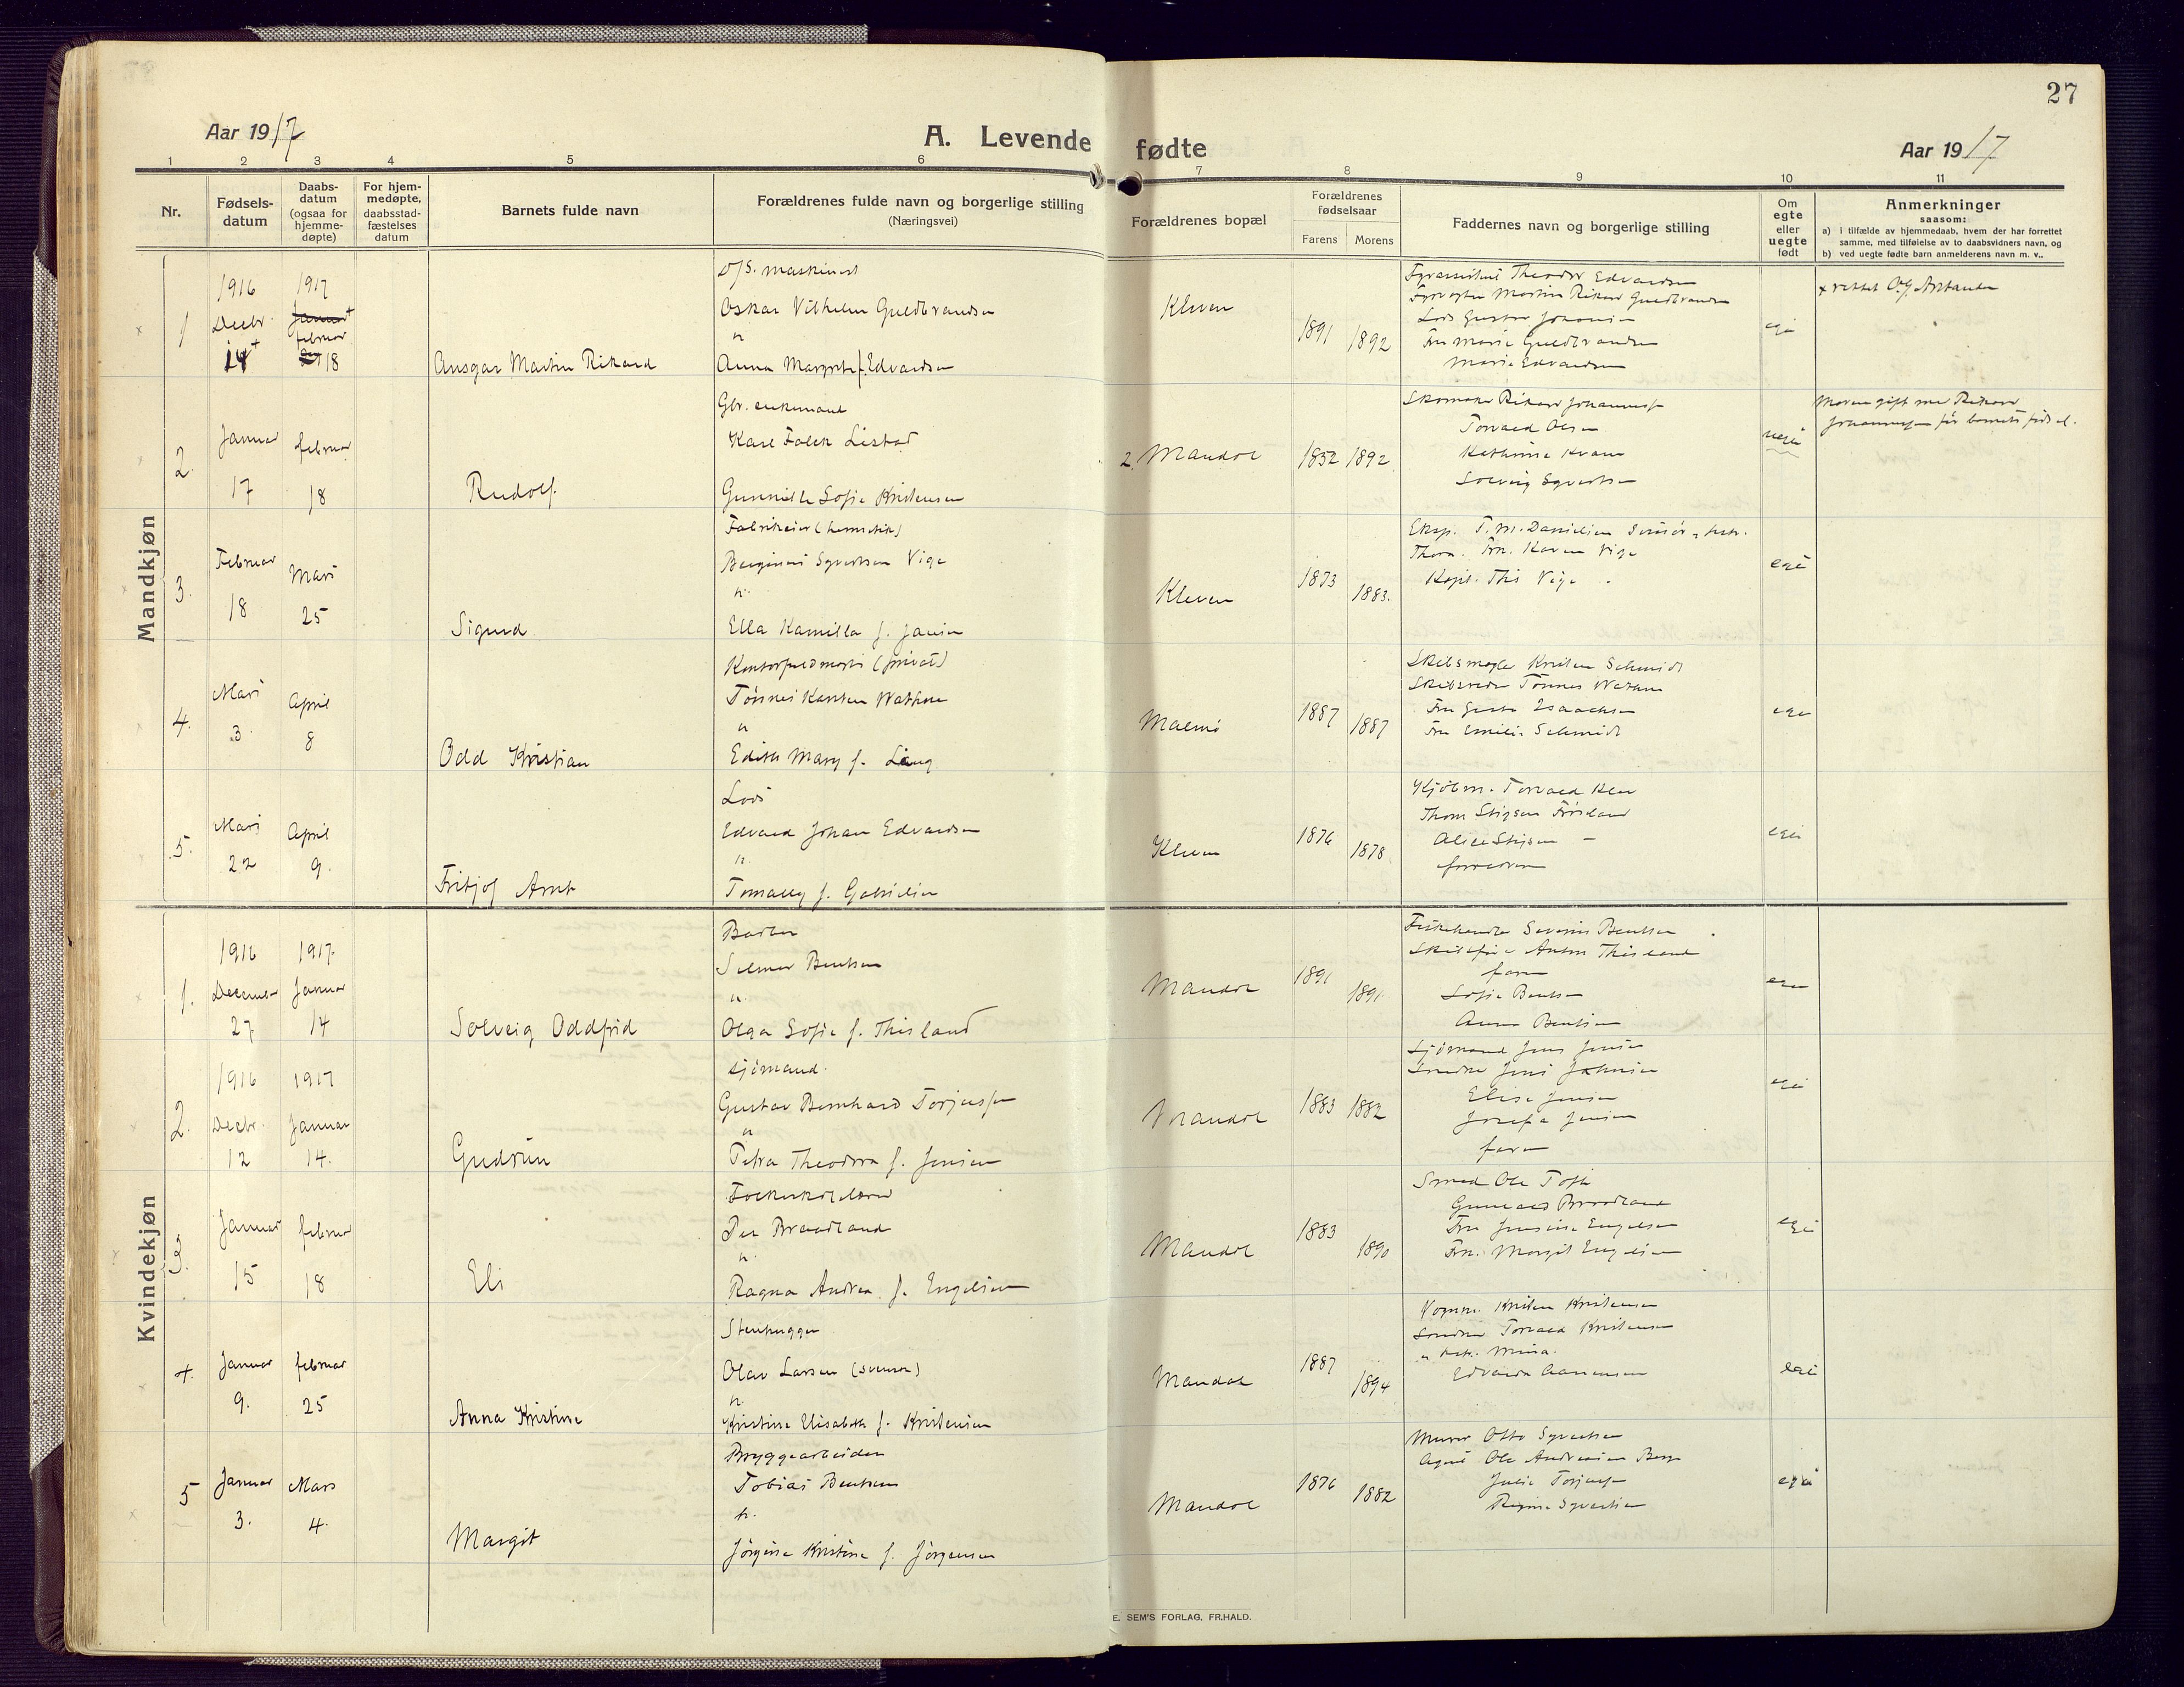 27
Aar 1917
A. Levende fødte
Aar 1917
1 2 3 4 5 6 7 8 9 10 11
Nr.
Fødsels-
datum
Daabs-
datum
(ogsaa for
hjemme-
døpte)
For hjem-
medøpte,
daabsstad-
fæstelses
datum
Barnets fulde navn
Forældrenes fulde navn og borgerlige stilling
(Næringsvei)
Forældrenes bopæl
Forældrenes
fødselsaar
Farens Morens
Faddernes navn og borgerlige stilling
Om
egte
eller
uegte
født
Anmerkninger
saasom:
a) i tilfælde av hjemmedaab, hvem der har forrettet
samme, med tilføielse av to daabsvidners navn, og
b) ved uegte fødte barn anmelderens navn m. v..
Mandkjøn
1
1916
Decbr.
14
1917
Januar
februar
18
Ansgar Martin Rikard
D/S. maskinist
Oskar Vilhelm Guldbrandsen
Anna Margrethe f. Edvardsen
Kleven
1891 1892
Theodor Edvardsen
Martin Rikard Guldbrandsen
Lods Gustav Johansen
Fru Marie Guldbrandsen
Marie Edvardsen
2.
Januar
17
februar
18
Rudolf.
Gbr. enkemand
Karl Falck Listad
Gunnilde Sofie Kristensen
2. Mandal
1852 1892
Skomaker Rikard Johannessen
Torvald Olsen
Kathrine Kvam
Solveig Syvertsen
uegte
Moren gift med Rikard
Johannessen før barnets fødsel.
3.
Februar
18
Mars
25
Sigurd
Fabrikeier (hermetik)
Syvertsen Vige
Ella Kamilla f. Jansen
Kleven
1873
1883.
Eksp. T. M. Danielsen
Frk. Karen Vige
Kapt. Ths Vige
egte
4.
Mars
3
April
8
Odd Kristian
(privat)
Tønnes Karsten Wathne
Edith Mary f. Lang
Malmø
1887
1887
Skibsmægler Kristen Schmidt
Skibsreder Tønnes Wathne
Isaachsen
Fru Emilie Schmidt
5.
Mars
22
April
9.
Fritjof Arnt
Lods
Edvard Johan Edvardsen
Tomally f. Gabrielsen
Kleven
1876
1878
Kjøbm. Torvald Klev
Thom Stigsen
Alice Stigsen
forældrene
egte
Kvindekjøn
1.
1916
December
27
1917.
Januar
14
Solveig Oddfrid
Barber
Selmer Bentsen
Olga Sofie f. Thisland
Mandal
1891
1891
Fiskehandler Severin Bentsen
Anton Thisland
faren
Sofie Bentsen
Anna Bentsen
2.
1916
Decbr.
12
1917
Januar
14.
Gudrun
Sjømand.
Gustav Bernhard Torjussen
Petra Theodora f. Jensen
Mandal
1883 1882
Sjømand Jens Jensen
Elise Jensen
Josefa Jensen
faren
3.
Januar
15
februar
18
Eli
Folkeskolelærer
Per Braadland
Ragna Andrea f. Engelsen
Mandal
1883
1890
Smed Ole Toft
Gunvald Braadland
Fru Jensine Engelsen
Frk. Margit Engelsen
egte
4
Januar
9.
februar
25
Anna Kristine
Stenhugger
Olav Larsen (svensk)
Kristine Elisabeth f. Kristensen
Mandal
1887
1894
Kristen Kristensen
Torvald Kristensen
Mina.
Edvarda Aanensen
egte
5
Januar
3.
Mars
4.
Margit
Bryggearbeider
Tobias Bentsen
Jørgine Kristine f. Jørgensen
Mandal
1876
1882
Murer Otto Syvertsen
Agent Ole Andreasen Berge
Julie Torjussen
Regine Syvertsen
egte
E. SEM'S FORLAG, FR.HALD.